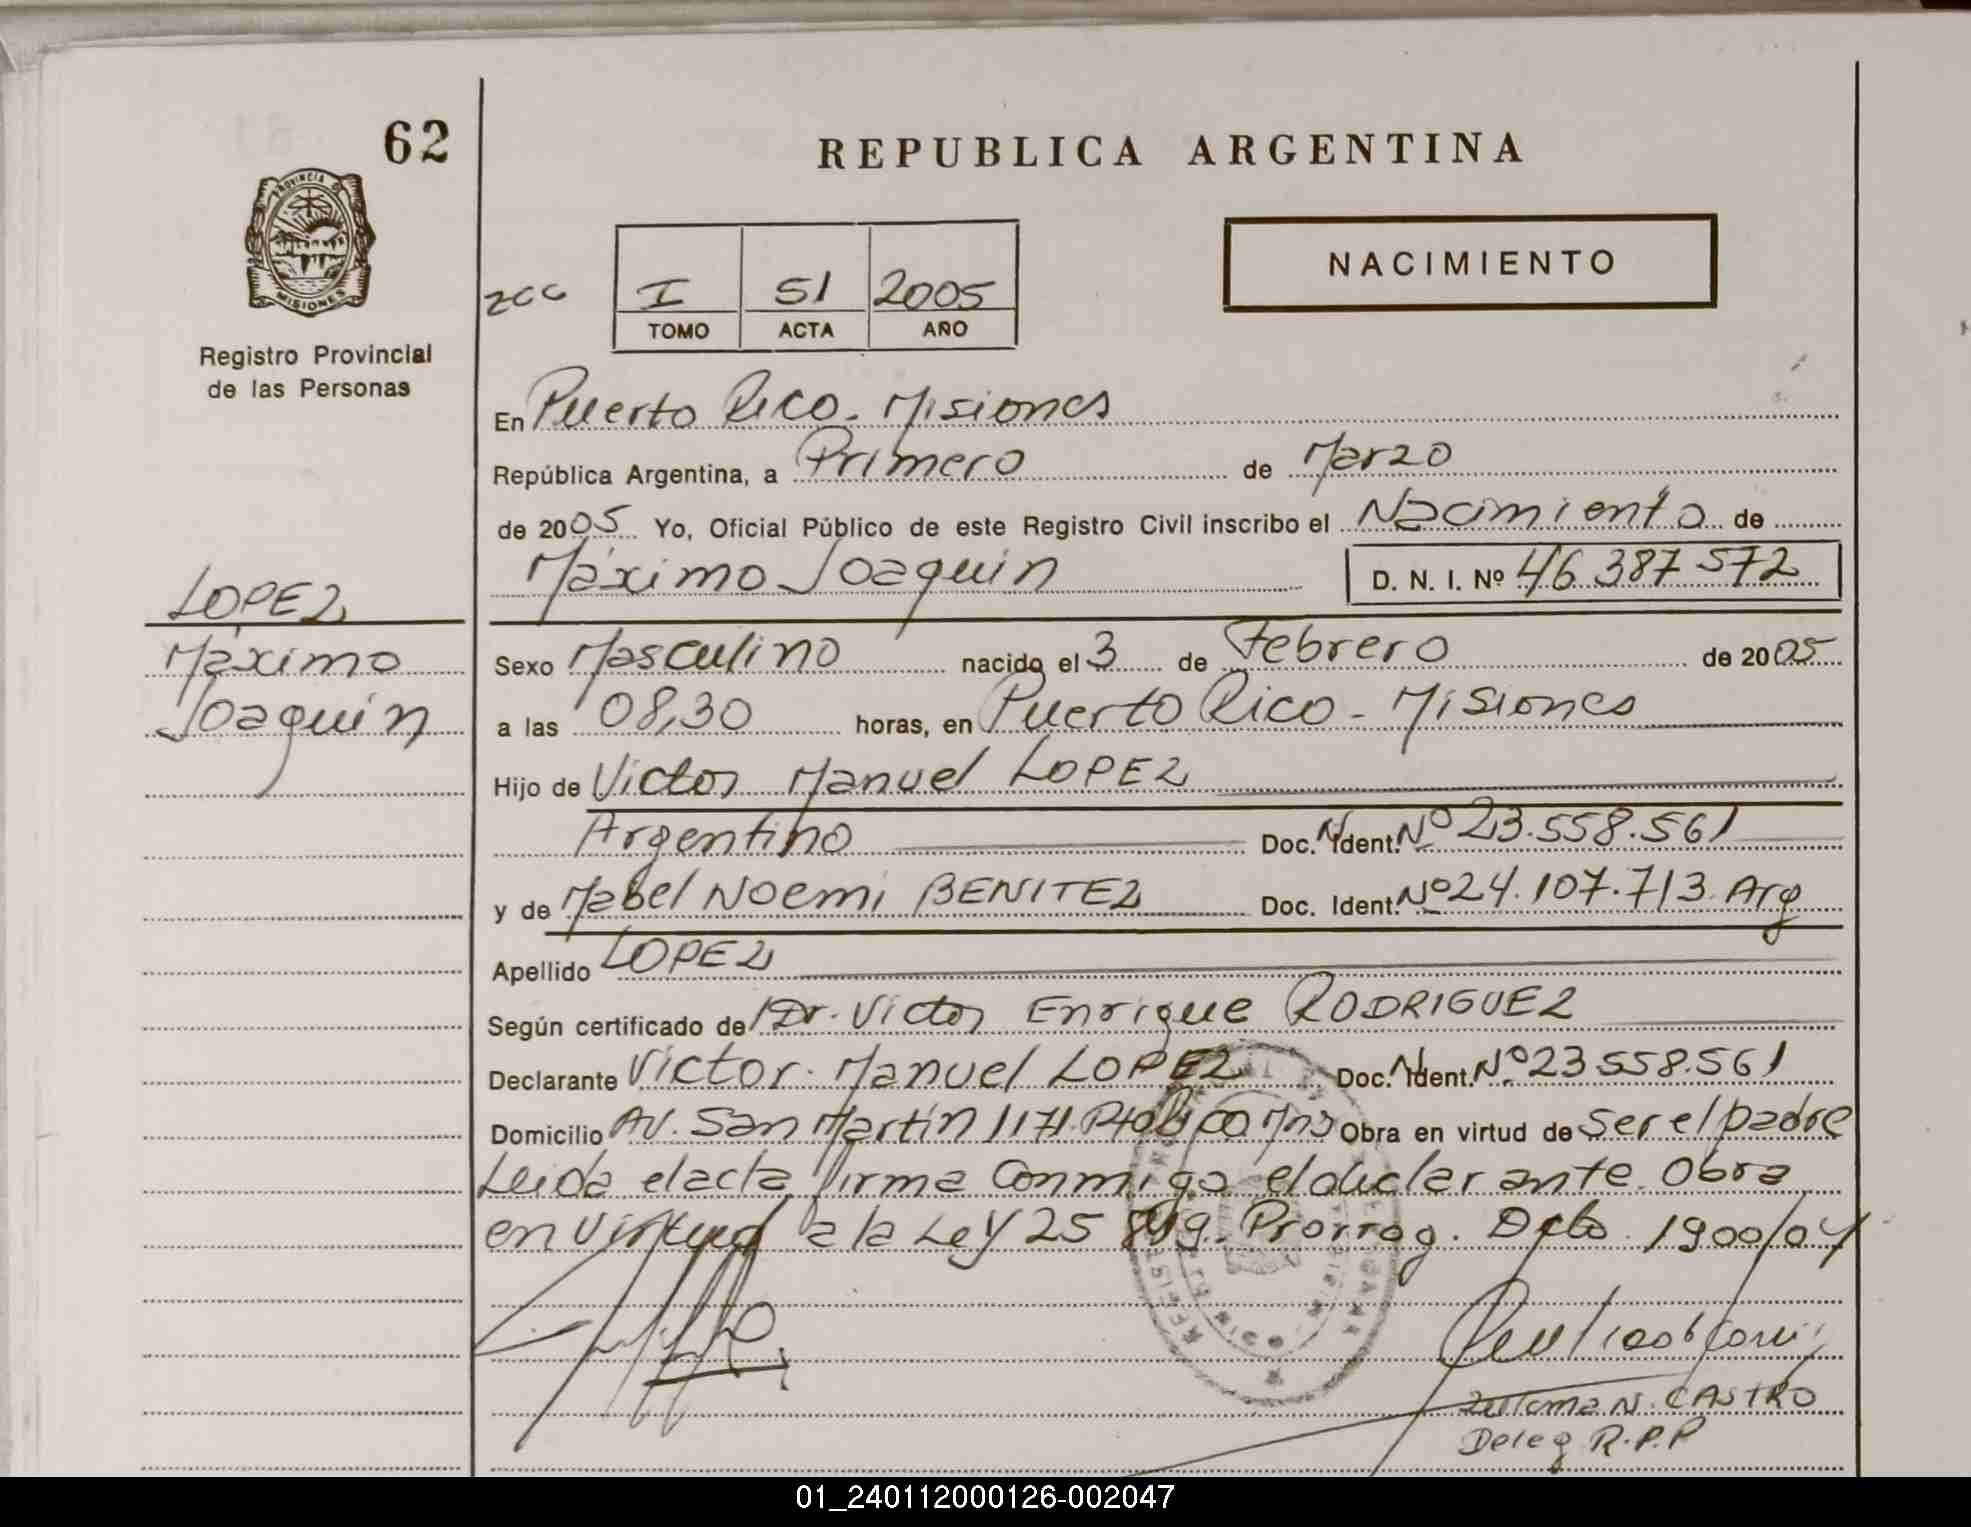 62
REPUBLICA ARGENTINA
PROVINCIA DE
MISIONES
Registro Provincial
de las Personas
NACIMIENTO
zcc I 51 2005
TOMO ACTA AÑO
En Puerto Rico. Misiones
República Argentina, a Primero de Marzo
de 2005 Yo, Oficial Público de este Registro Civil inscribo el Nacimiento de
Máximo Joaquin D. N. I. Nº 46 387 572
LOPEZ
Máximo
Joaquin
Sexo Masculino nacido el 3 de Febrero de 2005
a las 08,30 horas, en Puerto Rico - Misiones
Hijo de Victor Manuel LOPEZ
Argentino Doc. Ident. Nº 23.558.561
y de Mabel Noemi BENITEZ Doc. Ident. Nº 24.107.713. Arg
Apellido LOPEZ
Según certificado de Dr. Victor Enrique RODRIGUEZ
Declarante Victor Manuel LOPEZ Doc. Ident. Nº 23 558.561
Domicilio AV. San Martín 1171. Pto Rico Mns Obra en virtud de ser el padre
Leida el acta firma Conmigo el declarante. Obra
en Virtud a la Ley 25 819. Prorrog. Dcto. 1900/04
N. CASTRO
Deleg R.P.P
01_240112000126-002047